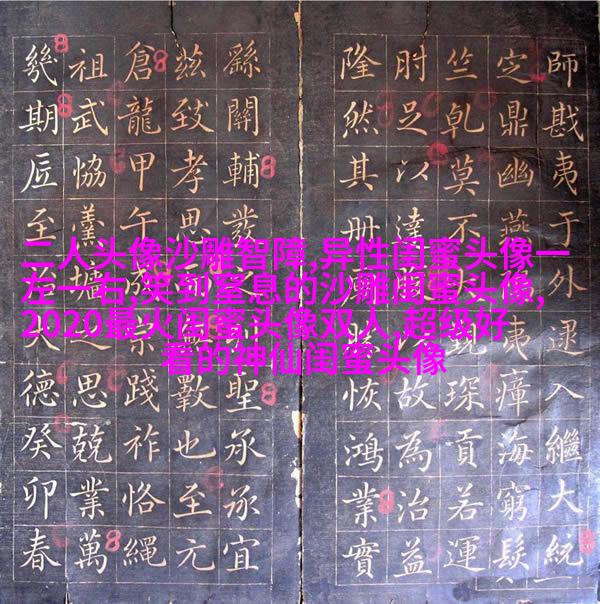 二人头像沙雕智障,异性闺蜜头像一
左一右,笑到窒息的沙雕闺蜜头像,
2020最火闺蜜头像双人,超级好
看的神仙闺蜜头像
師戡夷于外逮入繼大統
定鼎幽燕夷瘴海窮髮
竺乹莫不琛貢若運
肘足以達故為治益
隆然其冊恢鴻業實
繇關輔發聖承承宜
茲致孝思數也至元
倉龍甲午成宗踐祚恪繩
祖武恊羹墻之思兢業萬
幾期至治大德癸卯春